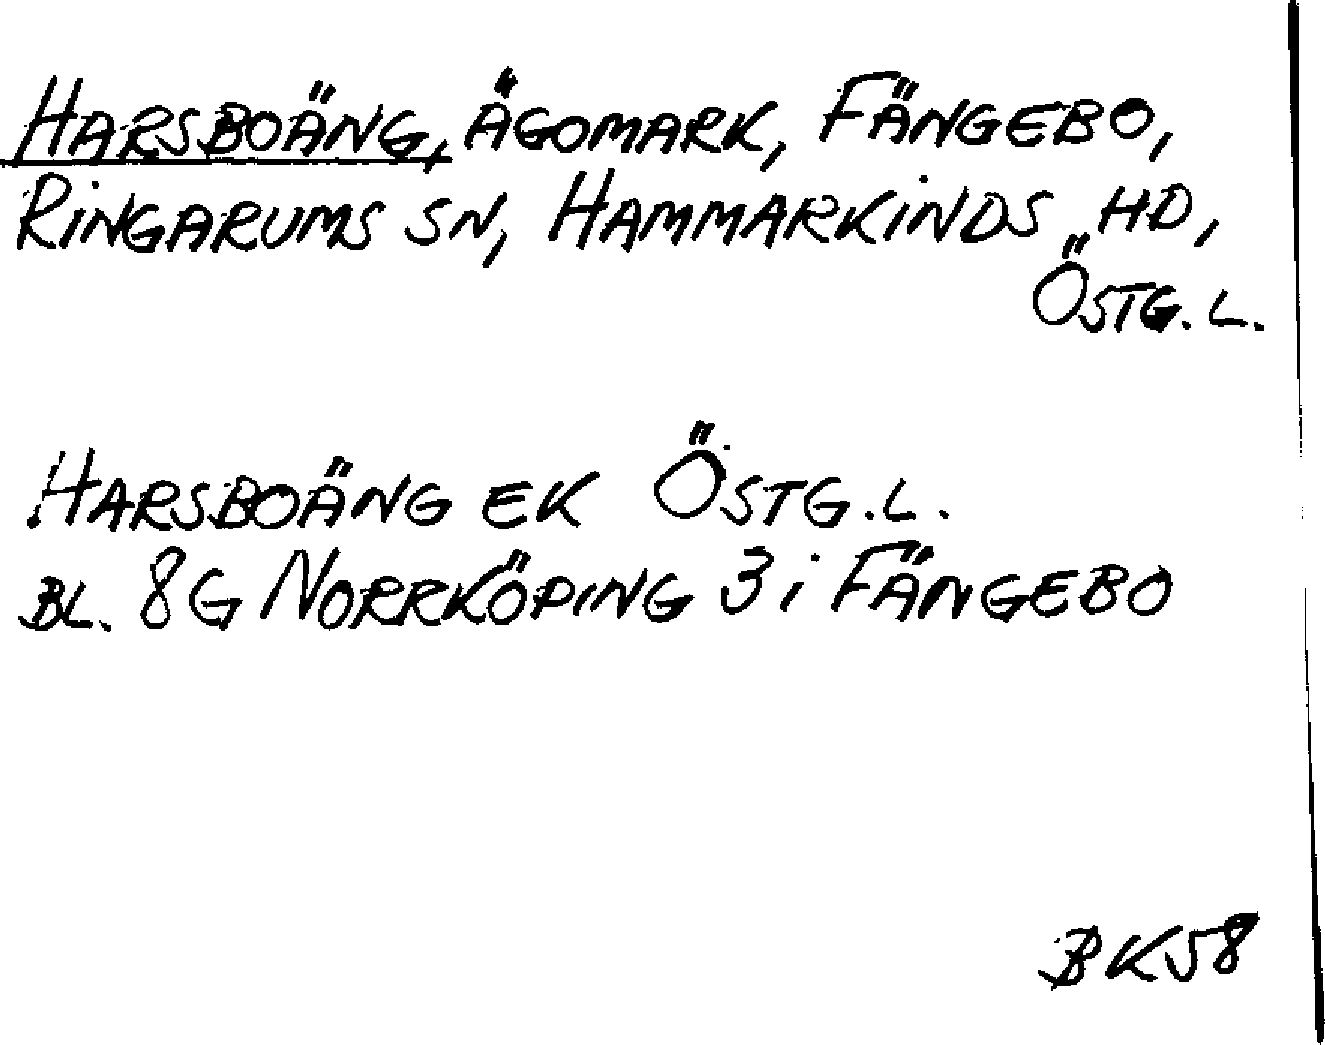 HARSBOÄNG, ÄGOMARK, FÄNGEBO,
RINGARUMS SN, HAMMARKINDS HD,
ÖSTG. L.
HARSBOÄNG EK ÖSTG. L.
BL. 8G NORRKÖPING 3i FÄNGEBO
BK58